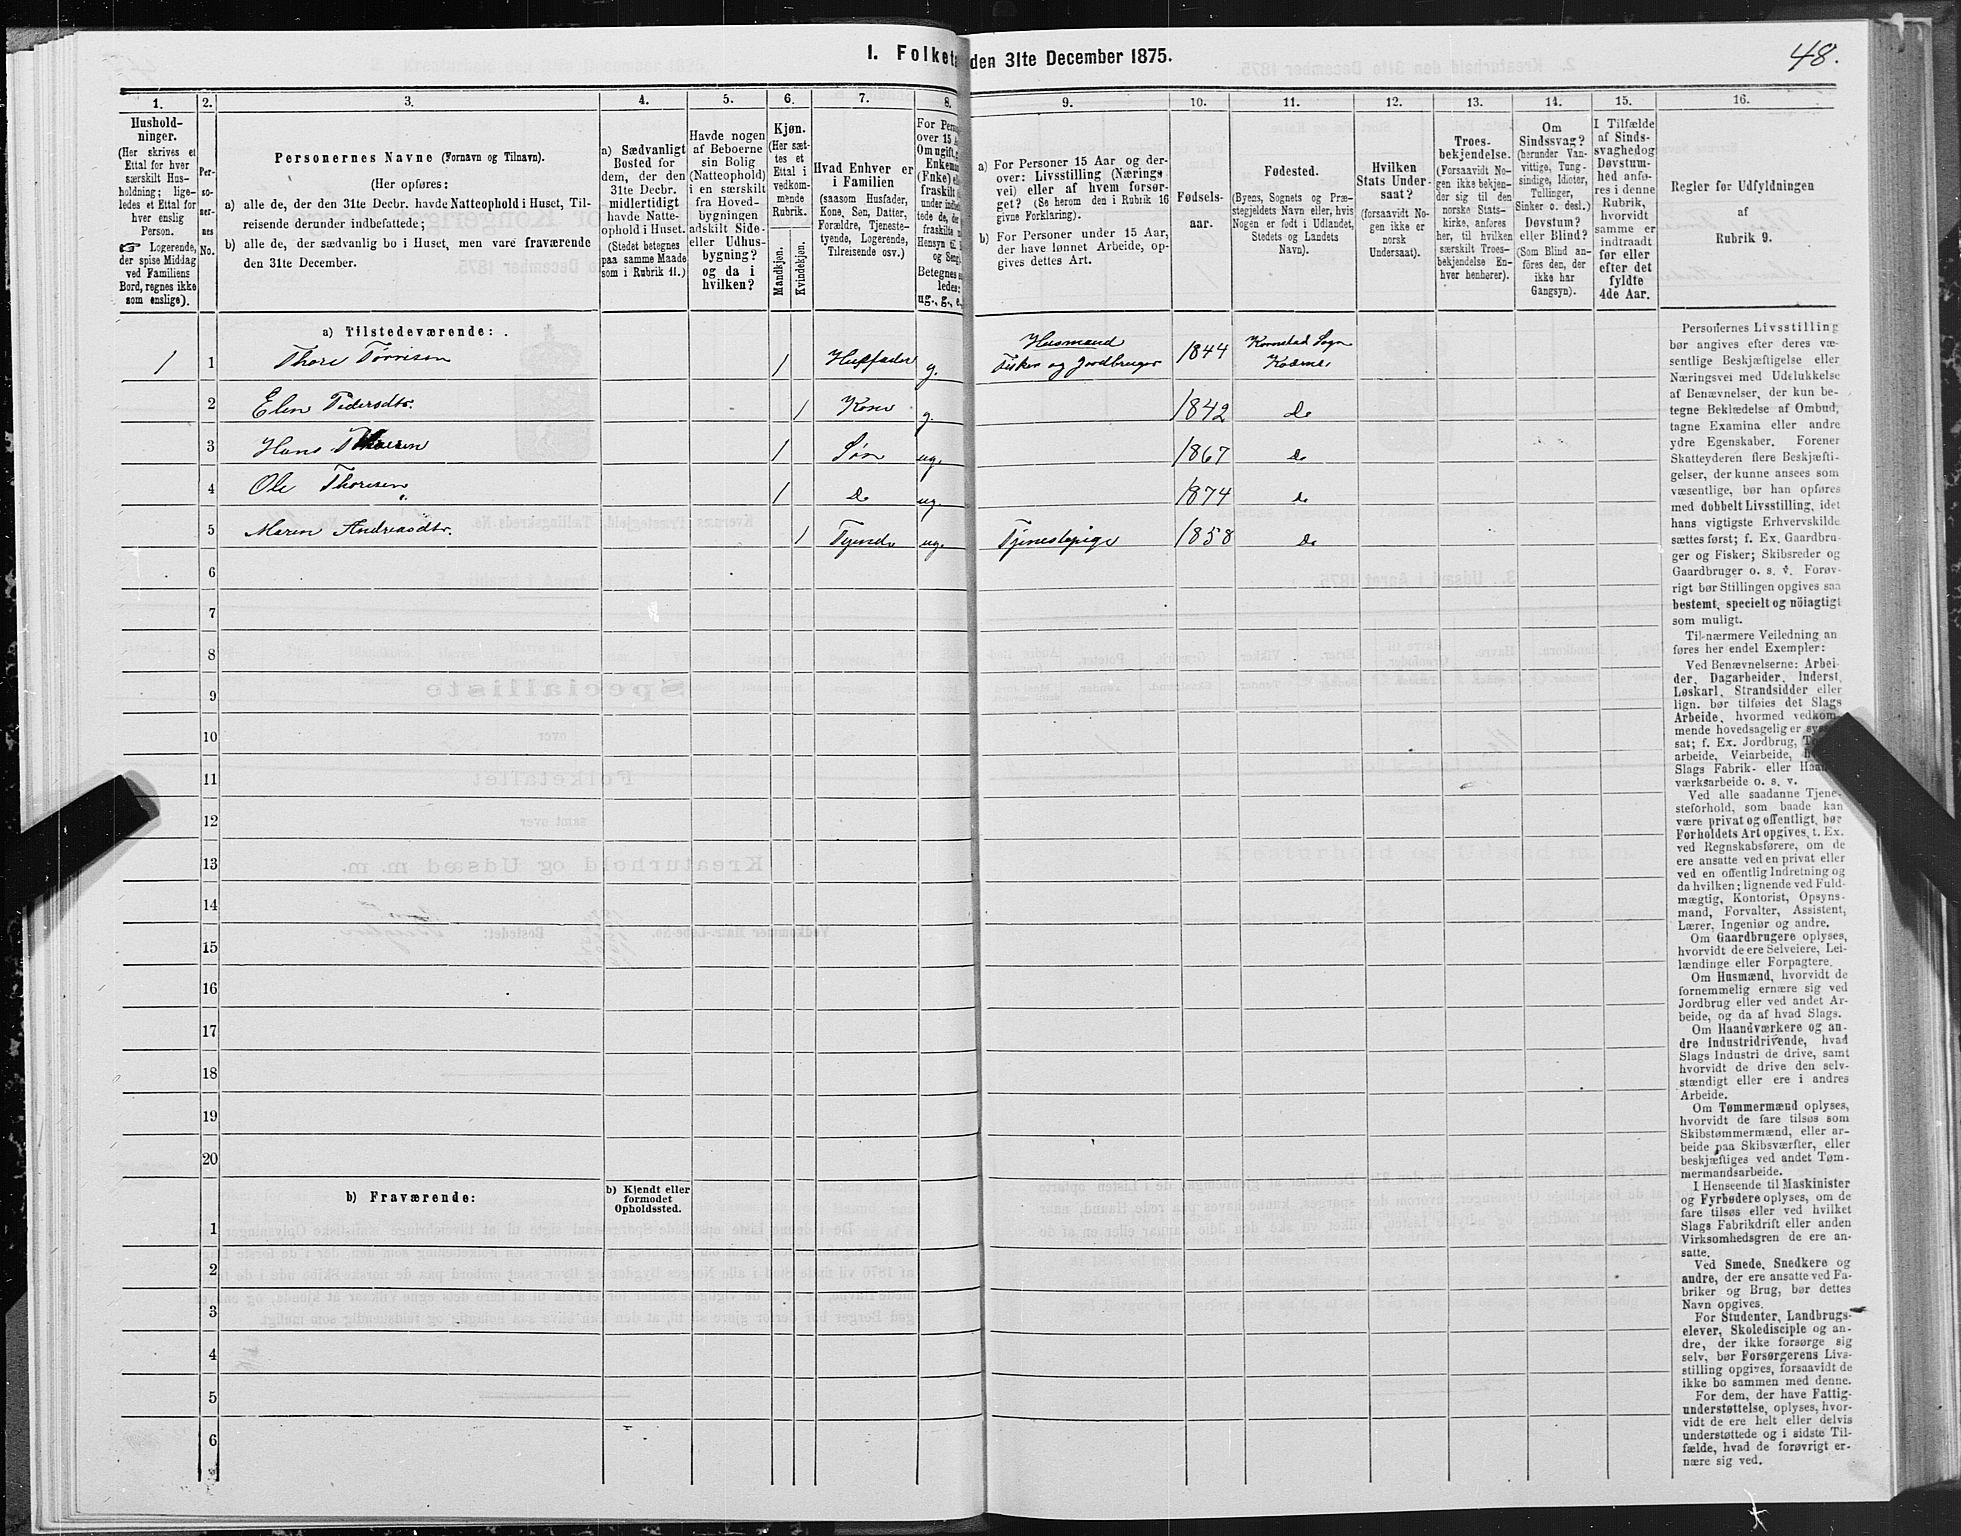 48.
I. Folketæ
den 31te December 1875.
1. 2. 3. 4. 5. 6. 7. 8. 9. 10. 11. 12. 13. 14. 15. 16.
Hushold-
ninger.
(Her skrives et
Ettal for hver
særskilt Hus-
holdning; lige-
ledes et Ettal for
hver enslig
Person.
☞ Logerende,
der spise Middag
ved Familiens
Bord, regnes ikke
som enslige).
Per-
so-
ner-
nes
No.
Personernes Navne (Fornavn og Tilnavn).
(Her opføres:
a) alle de, der den 31te Decbr. havde Natteophold i Huset, Til-
reisende derunder indbefattede;
b) alle de, der sædvanlig bo i Huset, men vare fraværende
den 31te December.
a) Sædvanligt
Bosted for
dem, der den
31te Decbr.
midlertidigt
havde Natte-
ophold i Huset.
(Stedet betegnes
paa samme Maade
som i Rubrik 11.)
Havde nogen
af Beboerne
sin Bolig
(Natteophold)
i en særskilt
fra Hoved-
bygningen
adskilt Side-
eller Udhus-
bygning?
og da i
hvilken?
Kjøn.
(Her sæt-
tes et
Ettal i
vedkom-
mende
Rubrik.
Mandkjøn.
Kvindekjøn.
Hvad Enhver er
i Familien
(saasom Husfader,
Kone, Søn, Datter,
Forældre, Tjeneste-
tyende, Logerende,
Tilreisende osv.)
For Pers
over 15 A
Om ugift, g
Enkem
(Enke) e
fraskilt
under indbef
tede de, de
fraskilte
Hensyn til
og Seng.
Betegnes s
ledes:
ug., g., e.
a) For Personer 15 Aar og der-
over: Livsstilling (Nærings
vei) eller af hvem forsør-
get? (Se herom den i Rubrik 16
givne Forklaring).
b) For Personer under 15 Aar,
der have lønnet Arbeide, op-
gives dettes Art.
Fødsels-
aar.
Fødested.
(Byens, Sognets og Præ-
stegjeldets Navn eller, hvis
Nogen er født i Udlandet,
Stedets og Landets
Navn).
Hvilken
Stats Under-
saat?
(forsaavidt No-
gen ikke er
norsk
Undersaat).
Troes-
bekjendelse.
(Forsaavidt No-
gen ikke bekjen-
der sig til den
norske Stats-
kirke, anføres
her, til hvilken
særskilt Troes-
bekjendelse En-
hver henhører).
Om
Sindssvag?
(herunder Van-
vittige, Tung-
sindige, Idioter,
Tullinger,
Sinker o. desl.)
Døvstum?
eller Blind?
(Som Blind an-
føres den, der
ikke har
Gangsyn).
I Tilfælde
af Sinds-
svaghed og
Døvstum-
hed anfø-
res i denne
Rubrik,
hvorvidt
samme er
indtraadt
før eller
efter det
fyldte
4de Aar.
Regler før Udfyldningen
af
Rubrik 9.
a) Tilstedeværende:
1 1 Thore Tørrisen 1 Husfader g. Husmand Fisker og Jordbruger 1844 Kornstad Sogn Kværnæs
2 Elen Pedersdtr. 1 Kone g. 1842 do
3 Hans Thoresen 1 Søn ug. 1867 do
4 Ole Thoresen 1 do ug. 1874 do
5 Maren Andreasdtr. 1 Tyende ug. Tjenestepige 1858 do
6
7
8
9
10
11
12
13
14
15
16
17
18
19
20
b) Fraværende:
b) Kjendt eller
formodet
Opholdssted.
1
2
3
4
5
6
Personernes Livsstilling
bør angives efter deres væ-
sentlige Beskjæftigelse eller
Næringsvei med Udelukkelse
af Benævnelser, der kun be-
tegne Beklædelse af Ombud,
tagne Examina eller andre
ydre Egenskaber. Forener
Skatteyderen flere Beskjæfti-
gelser, der kunne ansees som
væsentlige, bør han opføres
med dobbelt Livsstilling, idet
hans vigtigste Erhvervskilde
sættes først; f. Ex. Gaardbru-
ger og Fisker; Skibsreder og
Gaardbruger o. s. v. Forøv-
rigt bør Stillingen opgives saa
bestemt, specielt og nöiagtigt
som muligt.
Til nærmere Veiledning an
føres her endel Exempler:
Ved Benævnelserne: Arbei-
der, Dagarbeider, Inderst,
Løskarl, Strandsidder eller
lign. bør tilføies det Slags
Arbeide, hvormed vedkom-
mende hovedsagelig er syssel-
sat; f. Ex. Jordbrug, Tom-
arbeide, Veiarbeide, h
Slags Fabrik- eller Haand-
værksarbeide o. s. v.
Ved alle saadanne Tjene-
steforhold, som baade kan
være privat og offentligt, bør
Forholdets Art opgives, t. Ex.
ved Regnskabsførere, om de
ere ansatte ved en privat eller
ved en offentlig Indretning og
da hvilken; lignende ved Fuld-
mægtig, Kontorist, Opsyns-
mand, Forvalter, Assistent,
Lærer, Ingeniør og andre.
Om Gaardbrugere oplyses,
hvorvidt de ere Selveiere, Lei-
lændinge eller Forpagtere.
Om Husmænd, hvorvidt de
fornemmelig ernære sig ved
Jordbrug eller ved andet Ar-
beide, og da af hvad Slags.
Om Haandværkere og an-
dre Industridrivende, hvad
Slags Industri de drive, samt
hvorvidt de drive den selv-
stændigt eller ere i andres
Arbeide.
Om Tømmermænd oplyses,
hvorvidt de fare tilsøs som
Skibstømmermænd, eller ar-
beide paa Skibsværfter, eller
beskjæftiges ved andet Tøm-
mermandsarbeide.
I Henseende til Maskinister
og Fyrbødere oplyses, om de
fare tilsøs eller ved hvilket
Slags Fabrikdrift eller anden
Virksomhedsgren de ere an-
satte.
Ved Smede, Snedkere og
andre, der ere ansatte ved Fa-
briker og Brug, bør dettes
Navn opgives.
For Studenter, Landbrugs-
elever, Skoledisciple og an-
dre, der ikke forsørge sig
selv, bør Forsørgerens Livs-
stilling opgives, forsaavidt de
ikke bo sammen med denne.
For dem, der have Fattig-
understøttelse, oplyses, hvor-
vidt de ere helt eller delvis
understøttede og i sidste Til-
fælde, hvad de forøvrigt er-
nære sig ved.